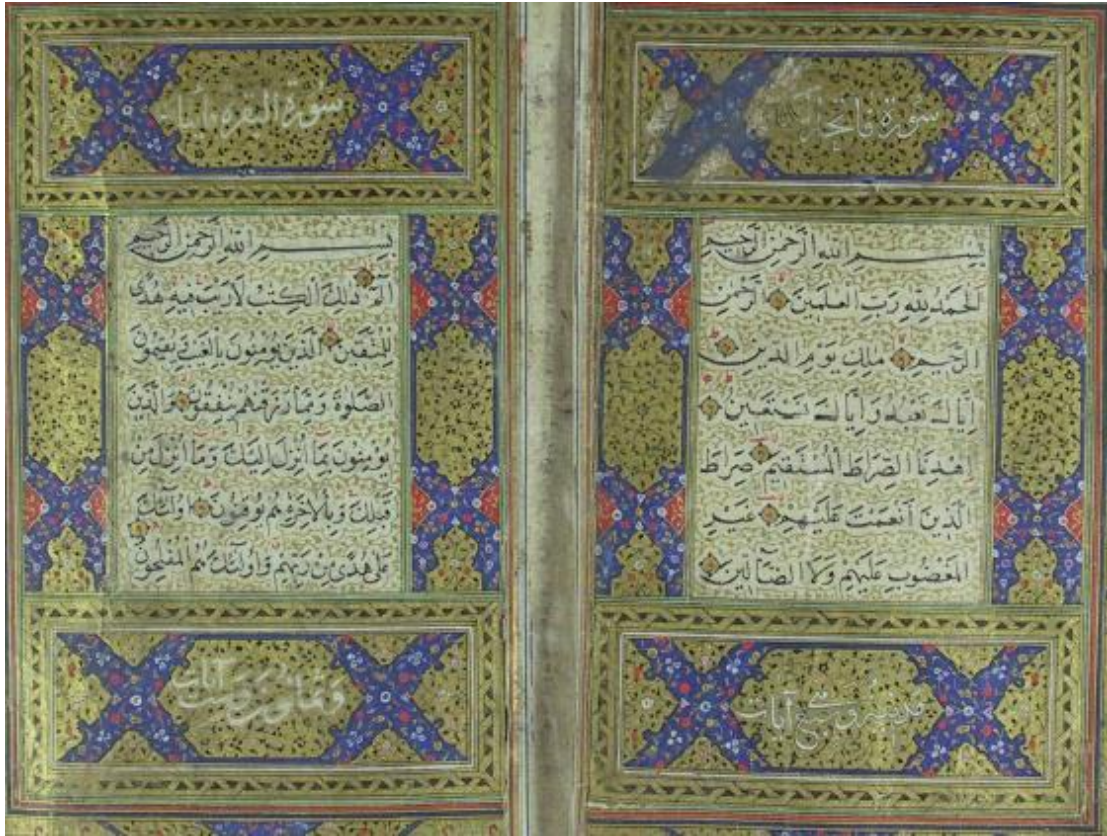 سورة فاتحة
بِسْمِ اللهِ الرَّحْمٰنِ الرَّحِيمِ
اَلْحَمْدُ لِلّٰهِ رَبِّ الْعٰلَمِينَ الرَّحْمٰنِ
الرَّحِيمِ مٰلِكِ يَوْمِ الدِّينِ
اِيَّاكَ نَعْبُدُ وَاِيَّاكَ نَسْتَعِينُ
اِهْدِنَا الصِّرَاطَ الْمُسْتَقِيمَ صِرَاطَ
الَّذِينَ اَنْعَمْتَ عَلَيْهِمْ غَيْرِ
الْمَغْضُوبِ عَلَيْهِمْ وَلَا الضَّآلِّينَ
مدنية وهي سبع آيات
سورة البقرة مائتان
بِسْمِ اللهِ الرَّحْمٰنِ الرَّحِيمِ
الٓمٓ ذٰلِكَ الْكِتٰبُ لَا رَيْبَ فِيهِ هُدًى
لِلْمُتَّقِينَ الَّذِينَ يُؤْمِنُونَ بِالْغَيْبِ وَيُقِيمُونَ
الصَّلٰوةَ وَمِمَّا رَزَقْنٰهُمْ يُنْفِقُونَ وَالَّذِينَ
يُؤْمِنُونَ بِمَآ اُنْزِلَ اِلَيْكَ وَمَآ اُنْزِلَ مِنْ
قَبْلِكَ وَبِالْاٰخِرَةِ هُمْ يُوقِنُونَ اُولٰٓئِكَ
عَلٰى هُدًى مِنْ رَبِّهِمْ وَاُولٰٓئِكَ هُمُ الْمُفْلِحُونَ
وثمانون وست آيات